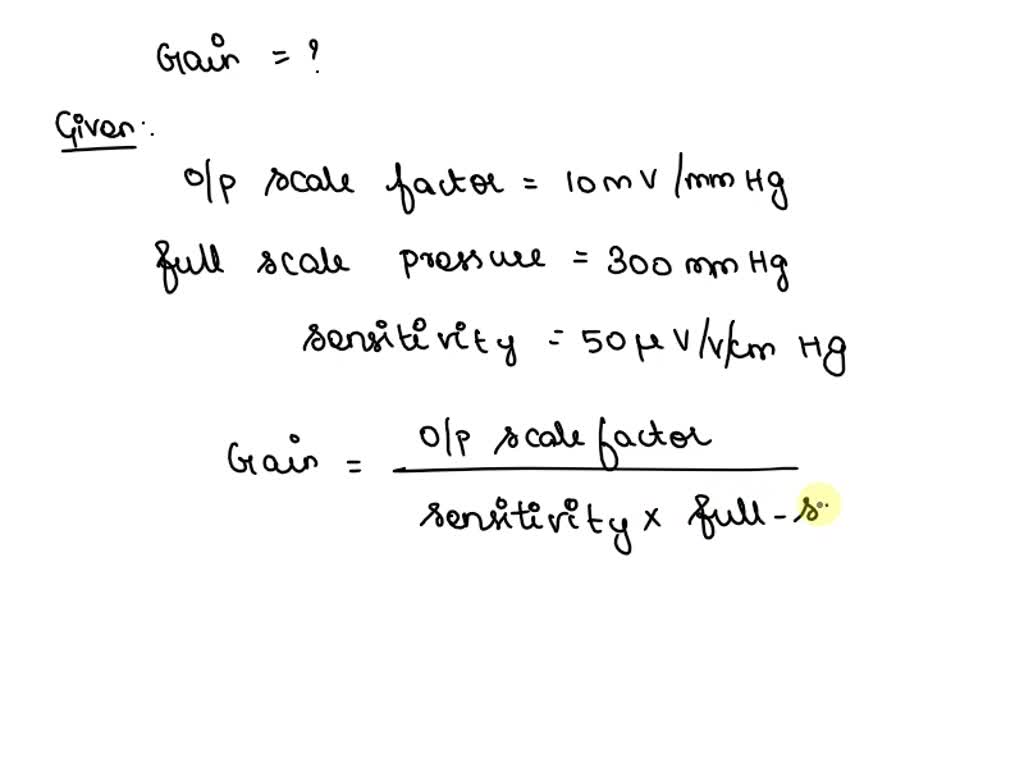 Gain = ?
Given:
O/p scale factor = 10 mV/mm Hg
full scale pressure = 300 mm Hg
sensitivity = 50 μV/V/cm Hg
Gain = O/p scale factor
sensitivity × full - s